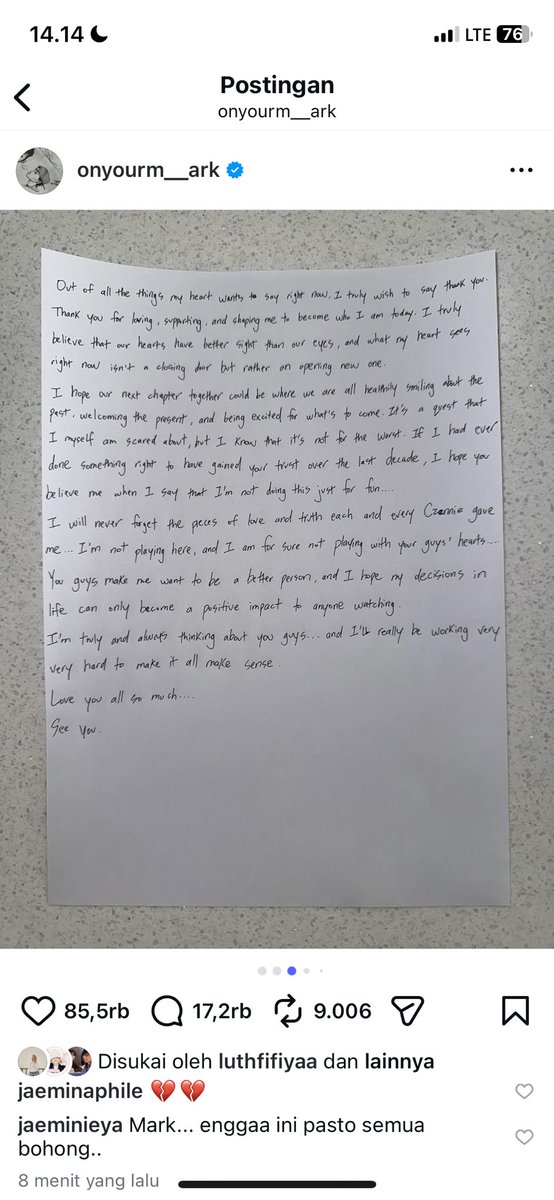 14.14
LTE 76
Postingan
onyourm__ark
onyourm__ark
Out of all the things my heart wants to say right now, I truly wish to say thank you.
Thank you for loving, supporting, and shaping me to become who I am today. I truly
believe that our hearts have better sight than our eyes, and what my heart sees
right now isn't a closing door but rather an opening new one.
I hope our next chapter together could be where we are all healthily smiling about the
past, welcoming the present, and being excited for what's to come. It's a quest that
I myself am scared about, but I know that it's not for the worst. If I had ever
done something right to have gained your trust over the last decade, I hope you
believe me when I say that I'm not doing this just for fun....
I will never forget the peces of love and truth each and every Czennie gave
me... I'm not playing here, and I am for sure not playing with your guys' hearts...
You guys make me want to be a better person, and I hope my decisions in
life can only become a positive impact to anyone watching.
I'm truly and always thinking about you guys... and I'll really be working very
very hard to make it all make sense.
Love you all so much....
See you.
85,5rb 17,2rb 9.006
Disukai oleh luthfifiyaa dan lainnya
jaeminaphile 💔💔
jaeminieya Mark... enggaa ini pasto semua
bohong..
8 menit yang lalu